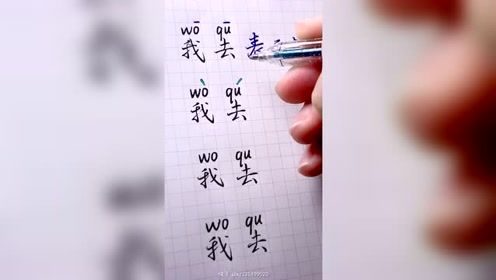 wō qū
我去表
wò qú
我去
wo qu
我去
wo qu
我去